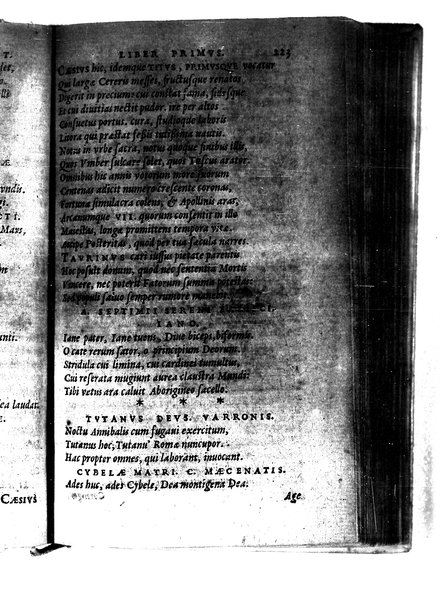 T.
LIBER PRIMVS. 223
CÆSIVS hic, idemque TITVS, PRIMVSQVE vocatur
Qui largæ Cereris messes, fructusque renatos
Digerit in precium: cui constat fama, fidesque
Et cui diuitias nectit pudor. ire per altos
Consuetus portus, cura, studioque laboris
Litora qui præstat fessis tutissima nautis.
Notus in vrbe sacra, notus quoque finibus illis,
Quos Vmber sulcare solet, quos Tuscus arator.
Omnibus hic annis votorum more suorum
Centenas adicit numero crescente coronas,
Fortunæ simulacra colens, & Apollinis aras,
Arcanumque VII. quorum consentit in illo
Maiestas, longæ promittens tempora vitæ.
Accipe Posteritas, quod per tua sæcula narres.
TAVRINVS cari iussus pietate parentis
Hoc posuit donum, quod nec sententia Mortis
Vincere, nec poterit Fatorum summa potestas:
Sed populi saluo semper rumore manebit.
A. SEPTIMII SERENI
IANO.
Iane pater, Iane tuens, Diue biceps, biformis.
O cate rerum sator, o principium Deorum.
Stridula cui limina, cui cardinei tumultus,
Cui reserata mugiunt aurea claustra Mundi:
Tibi vetus ara caluit Aborigineo sacello.
* * *
TVTANVS DEVS. VARRONIS.
Noctu Annibalis cum fugaui exercitum,
Tutanus hoc, Tutanu' Romæ nuncupor.
Hac propter omnes, qui laborant, inuocant.
CYBELÆ MATRI. C. MÆCENATIS.
Ades huc, ades Cybele, Dea montigena Dea:
Age,
CÆSIVS